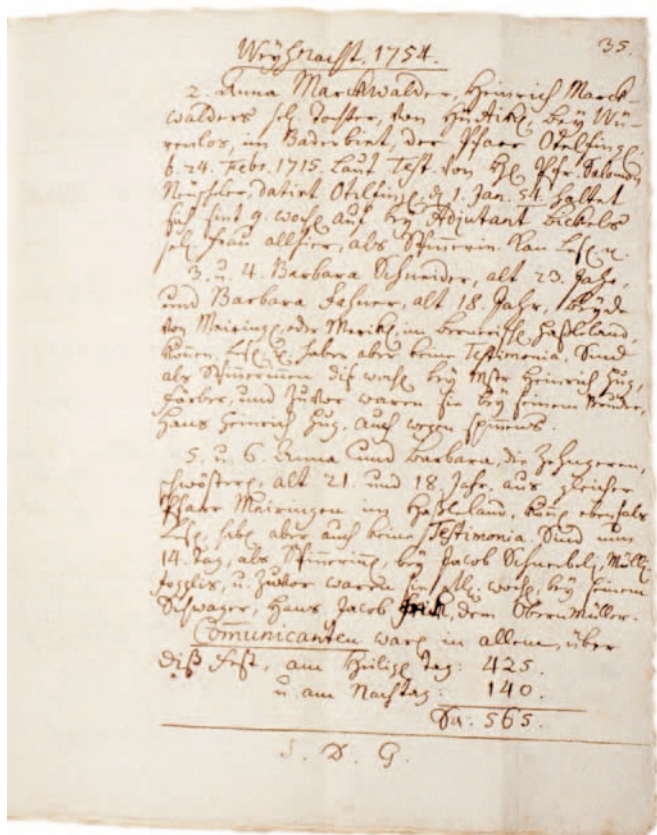 35.
Weyhnacht. 1754.
2. Anna Marckwalder, Heinrich Marck-
walders sel. Tochter, von Hüttike, bey Wü-
renlos, im Baderbiet, der Pfarr Otelfinge.
b. 24. Febr. 1715. Laut Test. von H. Pfr. Salomon
Nüscheler, datirt Otelfinge. d. 1. Jan. 54. haltet
sich sint 9. woche auf bey Adjutant Bickels
sel. Frau allhier, als Spinnerin. Kan Lese.
3. u. 4. Barbara Schneider, alt 23. Jahr,
und Barbara Fahner, alt 18. Jahr, beyde
von Mairinge, oder im bernerische Haßliland,
können Lese, haben aber keine Testimonia. Sind
als Spinnerinnen diß woche bey Mstr Heinrich Hug,
Färber, und zuvor waren sie bey seinem Bruder,
Hans Heinrich Hug, auch wegen spinnens.
5. u. 6. Anna und Barbara, die
schwöstere, alt 21. und 18. Jahr, aus gleicher
Pfarr Mairingen im Haßliland, könne ebenfals
Lese, habe aber auch keine Testimonia. Sind nun
14. Tag, als Spinnerine, bey Jacob Schnebeli, Mülli
, u. zuvor waren sie etl. woche, bey seinem
Schwager, Hans Jacob, dem Obern Müller.
Communicanten ware in allem, über
diß Fest, am Heilige Tag: 425.
u. am Nachtag: 140.
Sa. 565.
S. D. G.